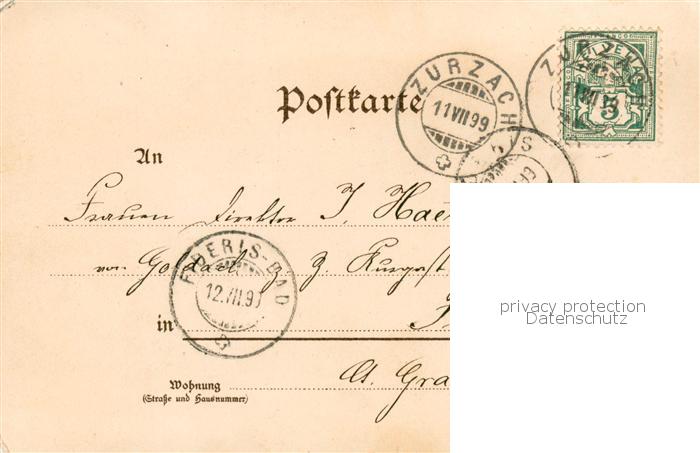 ZURZACH
11 VII 99
ZURZACH
5
Postkarte
An
Frauen Direktor J. Hae
von Goldach z. Z. Kurgast
FIDERIS-BAD
12.VII.99
in
Ct. Gra
Wohnung
(Straße und Hausnummer)
privacy protection
Datenschutz